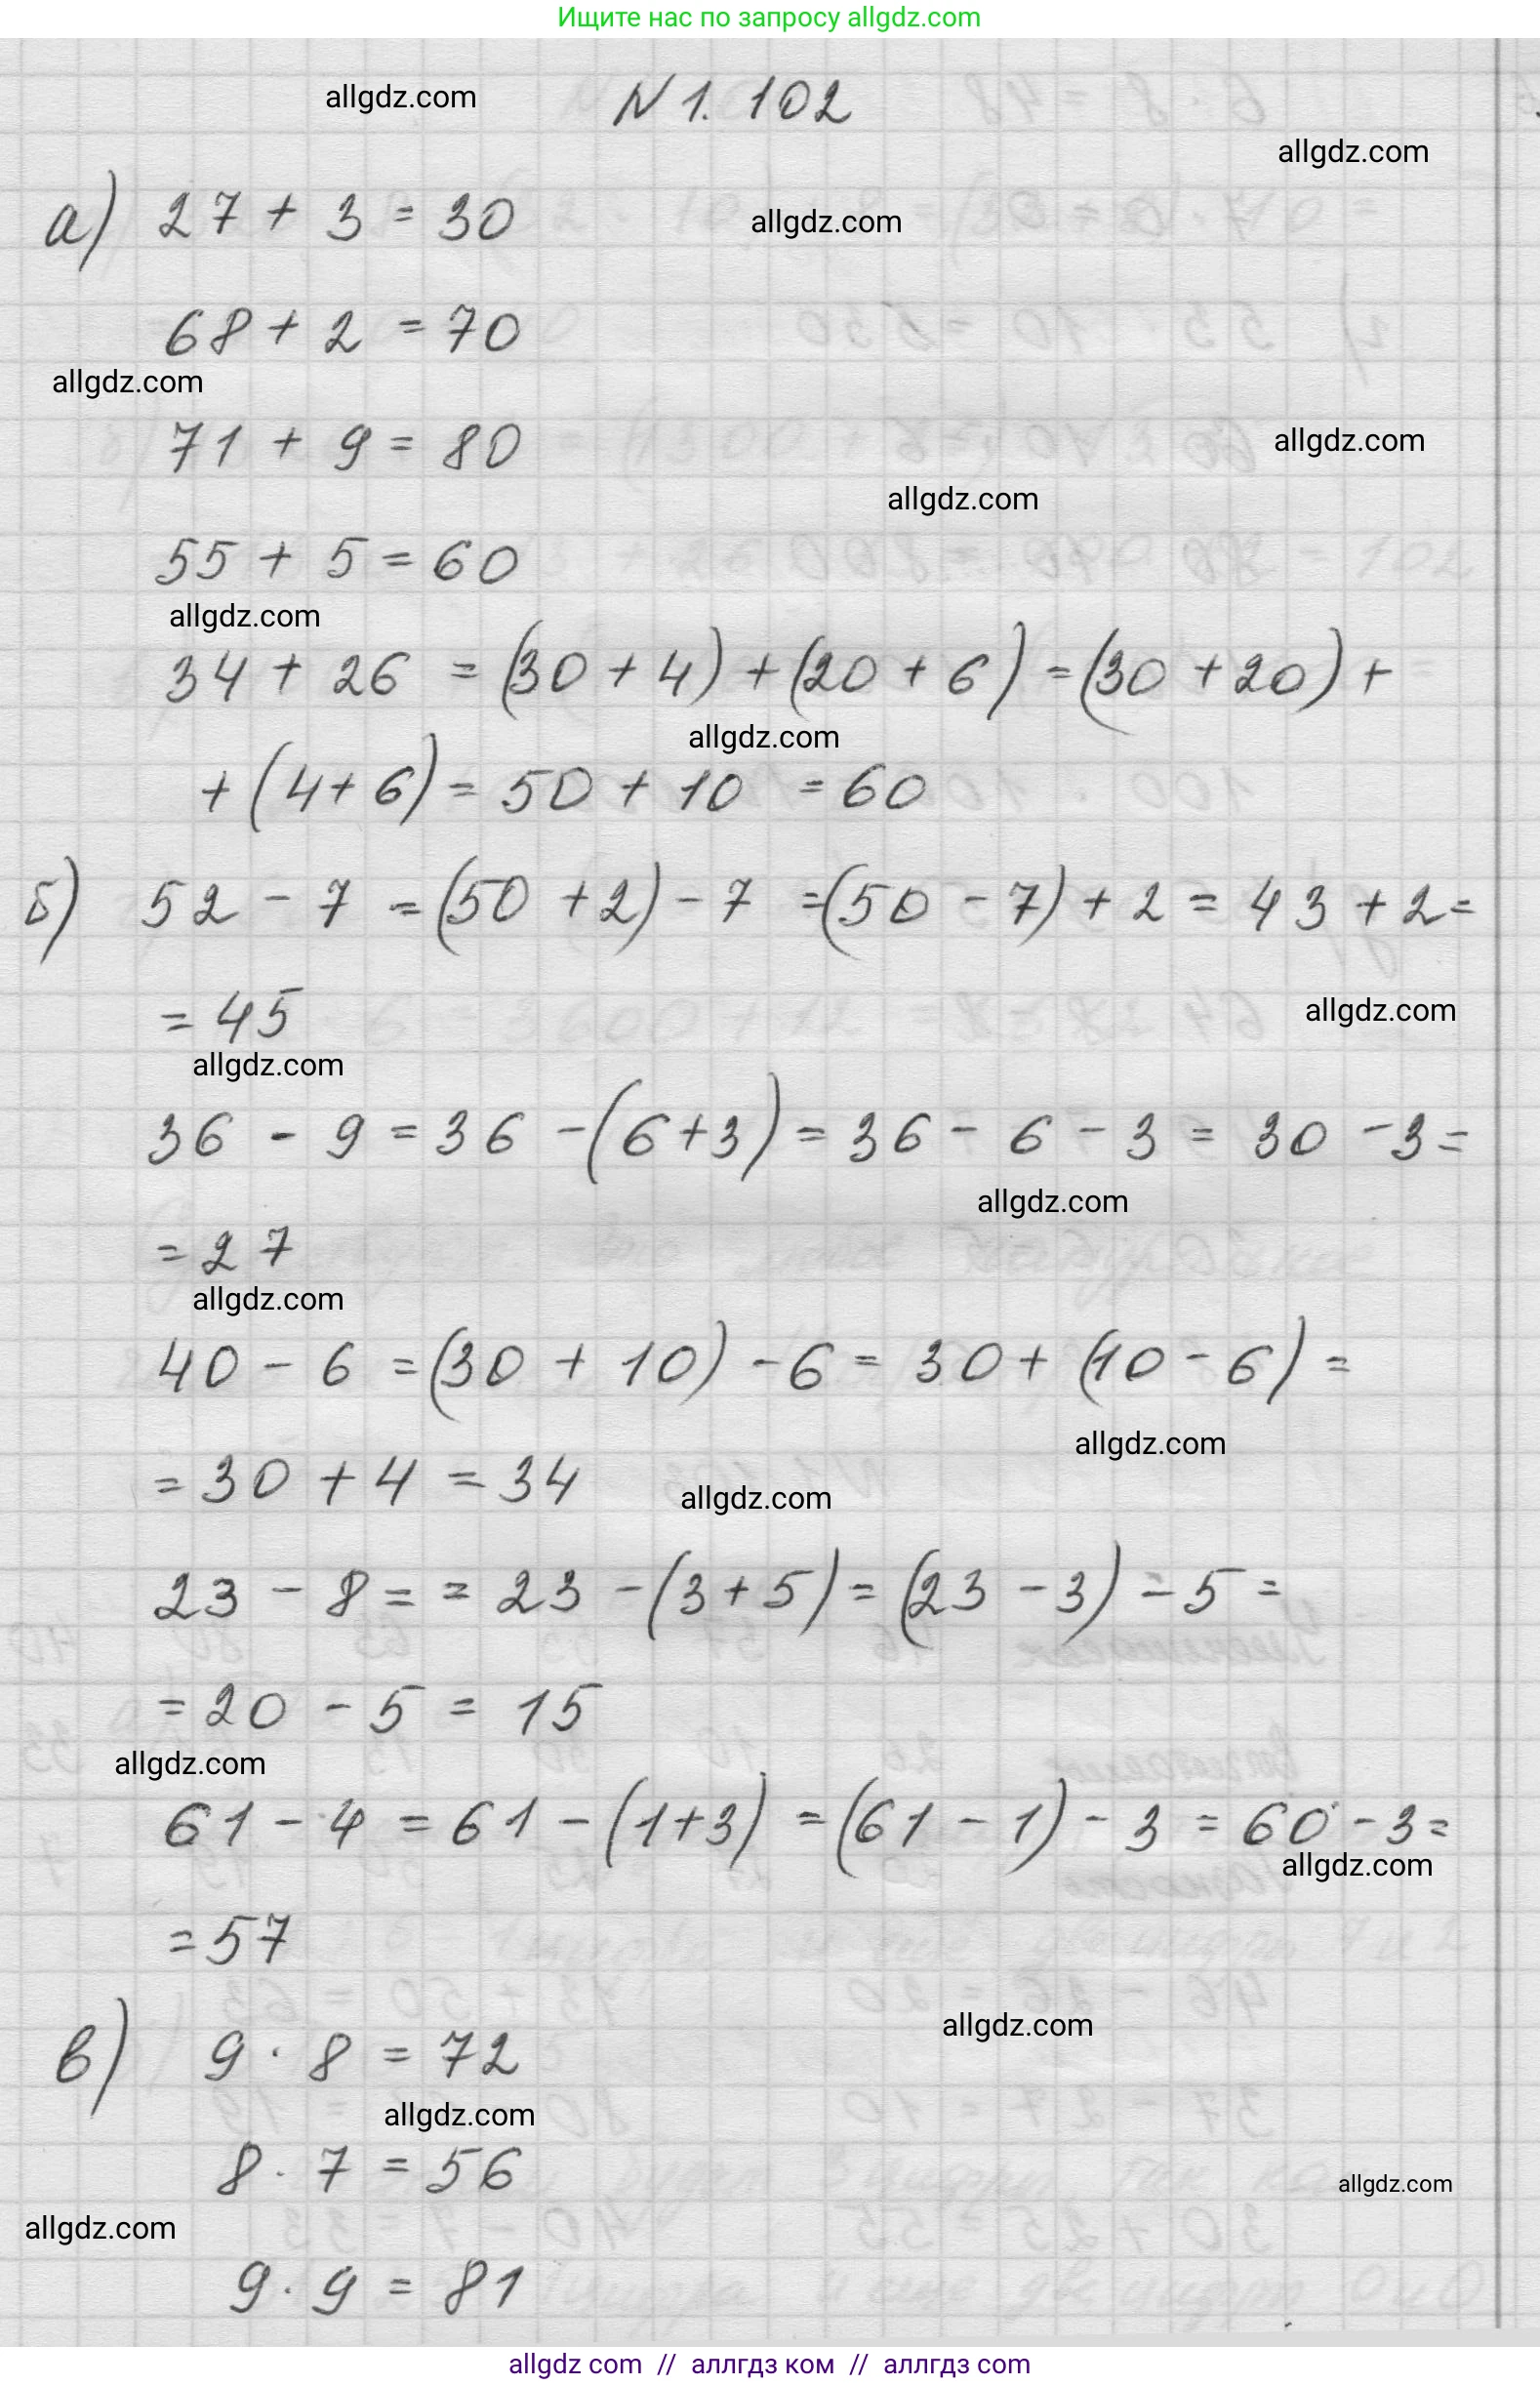 Ищите нас по запросу allgdz.com
allgdz.com
N 1. 102
allgdz.com
а) 27 + 3 = 30
allgdz.com
68 + 2 = 70
allgdz.com
71 + 9 = 80
allgdz.com
allgdz.com
55 + 5 = 60
allgdz.com
34 + 26 = (30 + 4) + (20 + 6) = (30 + 20) +
allgdz.com
+ (4 + 6) = 50 + 10 = 60
б) 52 - 7 = (50 + 2) - 7 = (50 - 7) + 2 = 43 + 2 =
= 45
allgdz.com
allgdz.com
36 - 9 = 36 - (6 + 3) = 36 - 6 - 3 = 30 - 3 =
allgdz.com
= 27
allgdz.com
40 - 6 = (30 + 10) - 6 = 30 + (10 - 6) =
allgdz.com
= 30 + 4 = 34
allgdz.com
23 - 8 = = 23 - (3 + 5) = (23 - 3) - 5 =
= 20 - 5 = 15
allgdz.com
61 - 4 = 61 - (1 + 3) = (61 - 1) - 3 = 60 - 3 =
allgdz.com
= 57
allgdz.com
в) 9 · 8 = 72
allgdz.com
8 · 7 = 56
allgdz.com
allgdz.com
9 · 9 = 81
allgdz com // аллгдз ком // аллгдз com